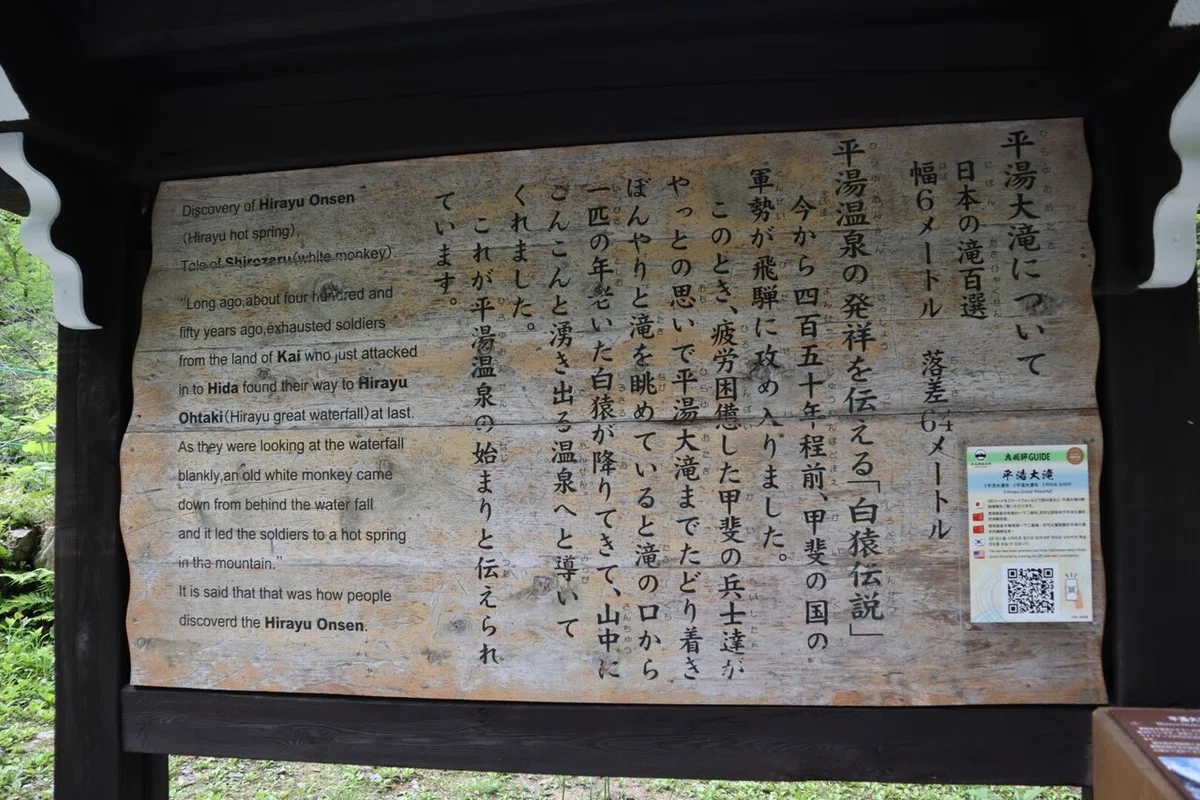 平湯大滝について
日本の滝百選
幅6メートル 落差64メートル
平湯温泉の発祥を伝える「白猿伝説」
今から四百五十年程前、甲斐の国の
軍勢が飛騨に攻め入りました。
このとき、疲労困憊した甲斐の兵士達が
やっとの思いで平湯大滝までたどり着き
ぼんやりと滝を眺めていると滝の口から
一匹の年老いた白猿が降りてきて、山中に
こんこんと湧き出る温泉へと導いて
くれました。
これが平湯温泉の始まりと伝えられ
ています。
Discovery of Hirayu Onsen
(Hirayu hot spring),
Tale of Shirozaru(white monkey).
"Long ago,about four hundred and
fifty years ago,exhausted soldiers
from the land of Kai who just attacked
in to Hida found their way to Hirayu
Ohtaki(Hirayu great waterfall)at last.
As they were looking at the waterfall
blankly,an old white monkey came
down from behind the water fall
and it led the soldiers to a hot spring
in the mountain."
It is said that that was how people
discoverd the Hirayu Onsen.
奥飛騨GUIDE
平湯大滝